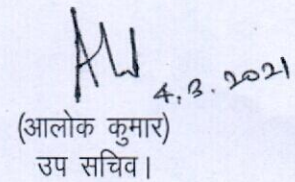 4.3.2021
(आलोक कुमार)
उप सचिव।